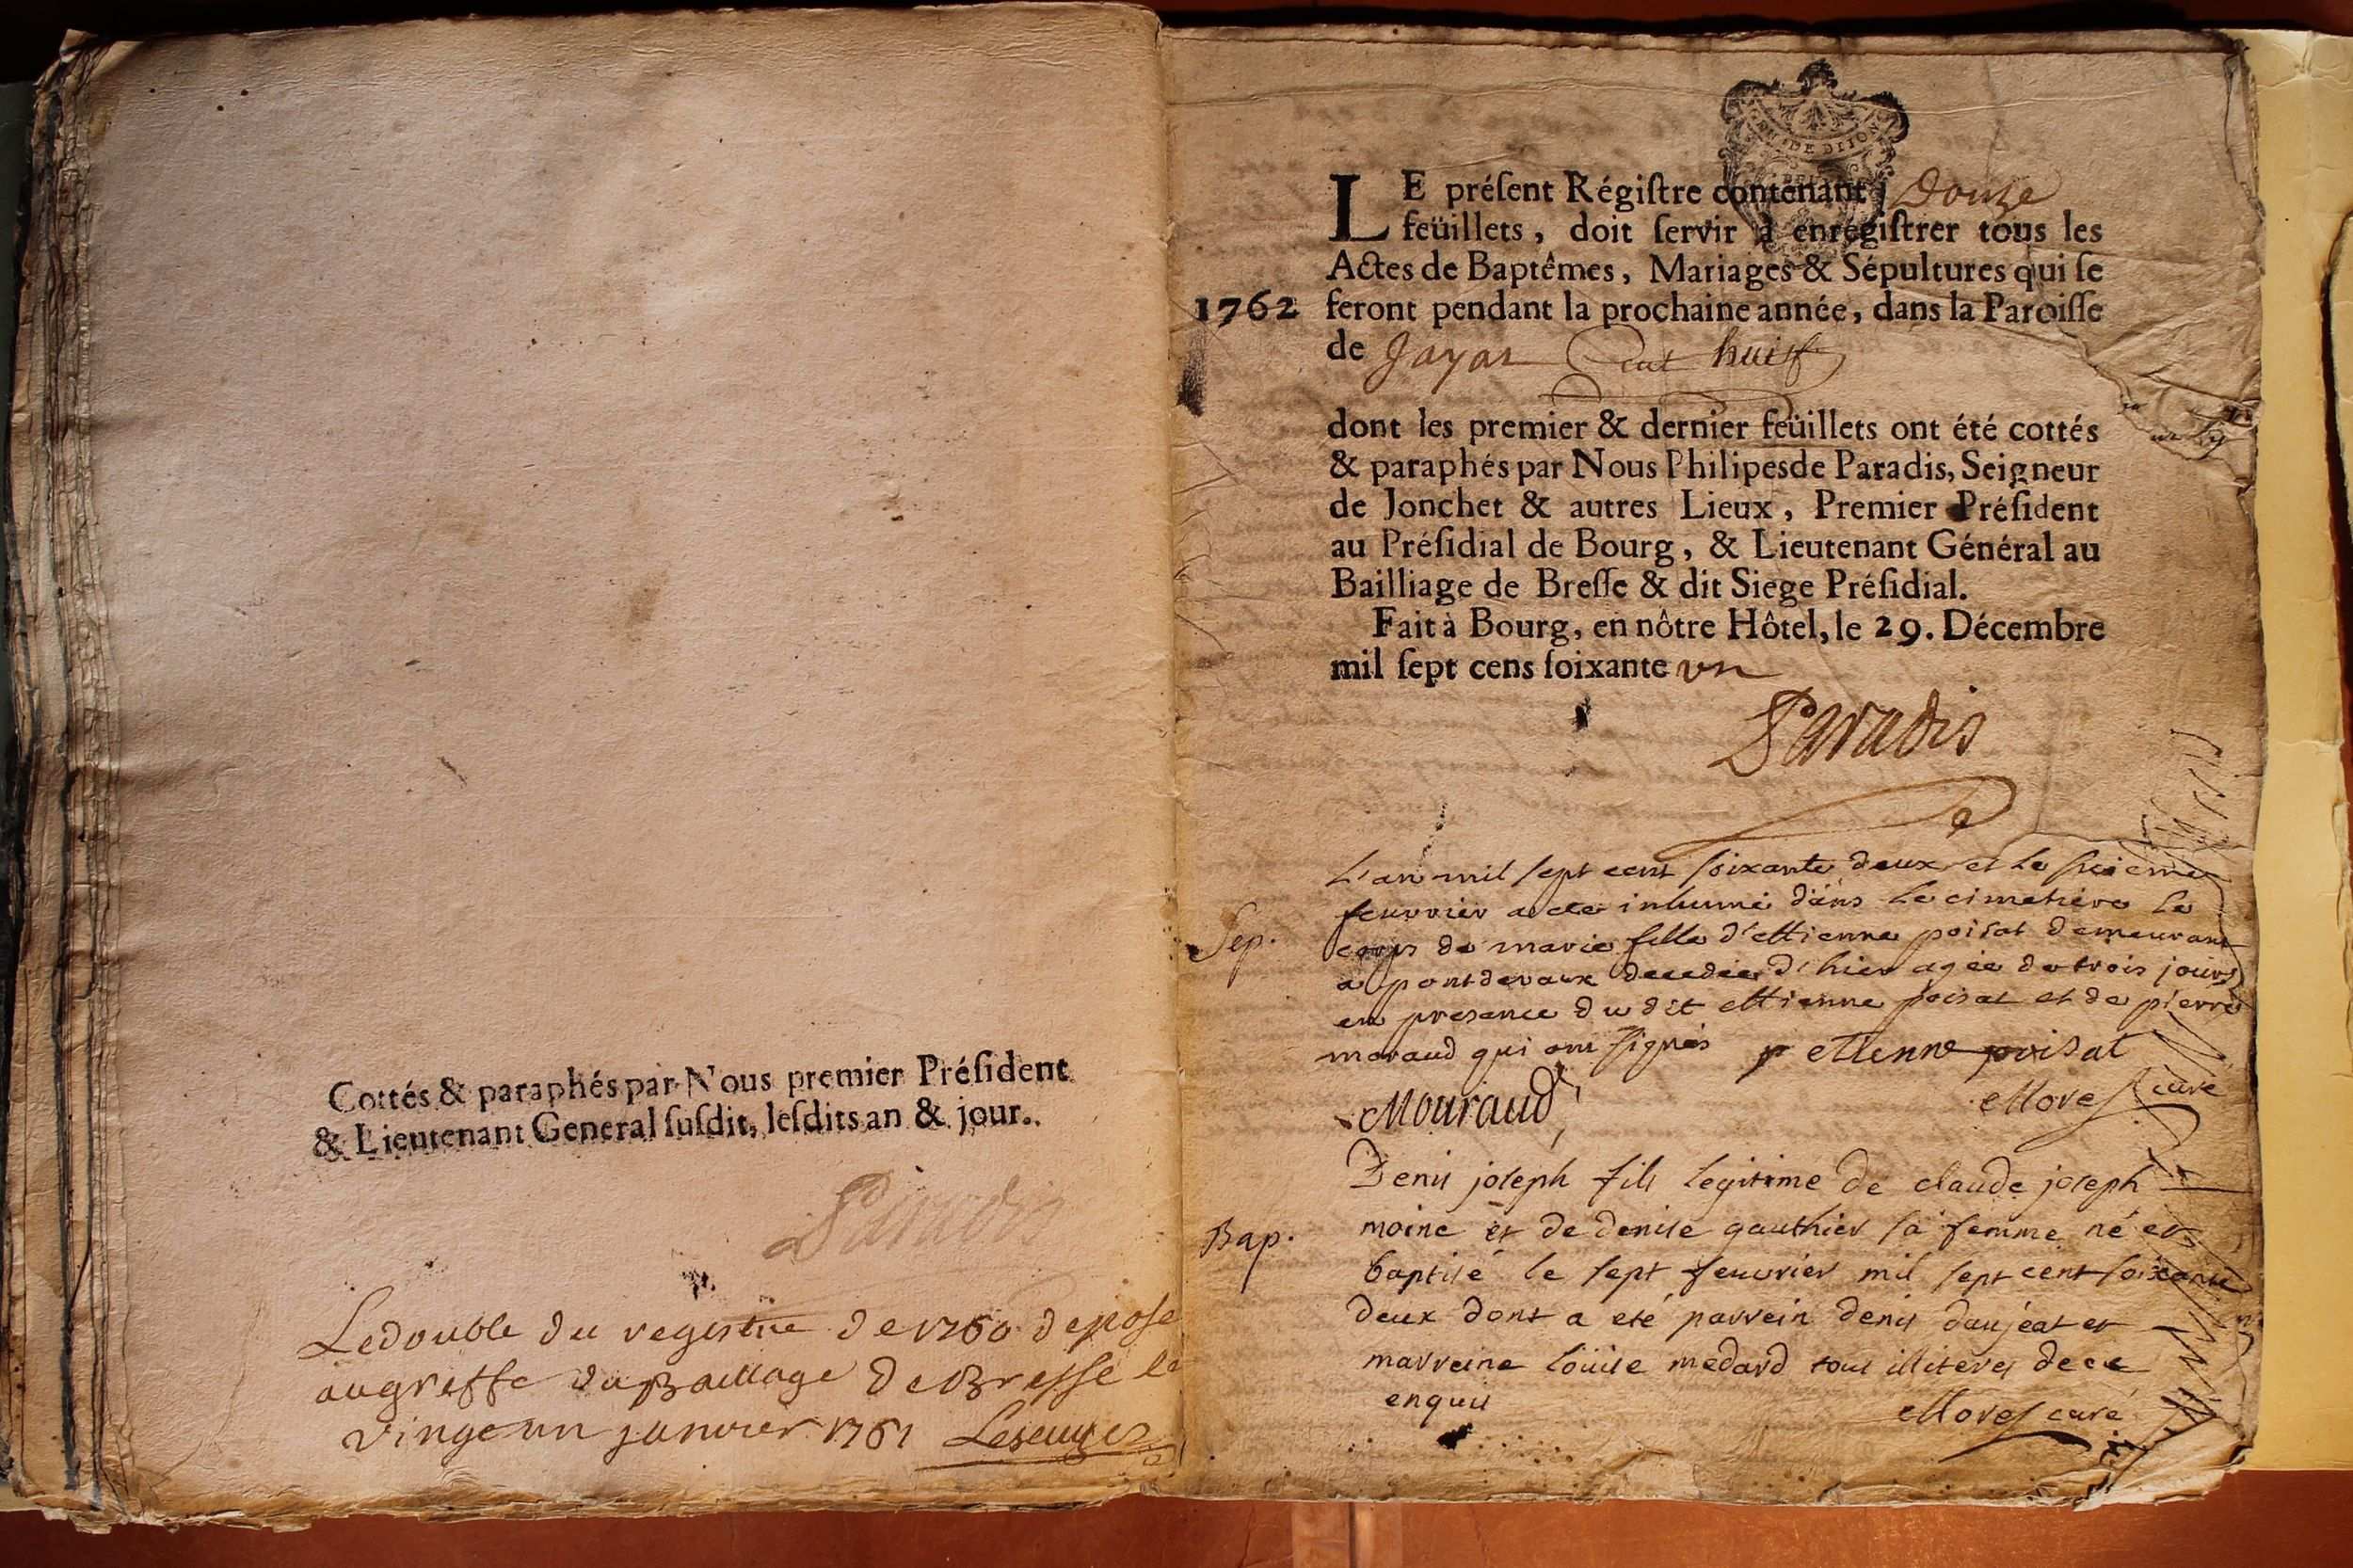 Cottés & paraphés par Nous premier Préſident
& Lieutenant General ſuſdit, leſdits an & jour.
Paradis
Ledouble du registre de 1760 depose
augreffe du Bailliage de Bresse le
vingt un janvier 1761
DE DIJON
LE préſent Régiſtre contenant Douze
feüillets, doit ſervir à enregiſtrer tous les
Actes de Baptêmes, Mariages & Sépultures qui ſe
1762 feront pendant la prochaine année, dans la Paroiſſe
de Jayat huit
dont les premier & dernier feüillets ont été cottés
& paraphés par Nous Philipes de Paradis, Seigneur
de Jonchet & autres Lieux, Premier Préſident
au Préſidial de Bourg, & Lieutenant Général au
Bailliage de Breſſe & dit Siege Préſidial.
Fait à Bourg, en nôtre Hôtel, le 29. Décembre
mil ſept cens ſoixante vn
Paradis
L'an mil sept cent soixante deux et le
feuvrier a ete inhumé dans le cimetiere le
Sep. corps de marie fille d'ettienne poisat demeurant
a pontdevaux decedée d'hier agée de trois jours
en presence du dit ettienne poisat et de pierre
moraud qui ont signés p ettienne poisat
Mouraud Morel curé
Denis joseph fils legitime de claude joseph
Bap. moine et de denise gauthier sa femme né et
baptisé le sept feuvrier mil sept cent soixante
deux dont a eté parrein denis daujéat et
marreine loüise medard tous illiteres de ce
enquis Morel curé